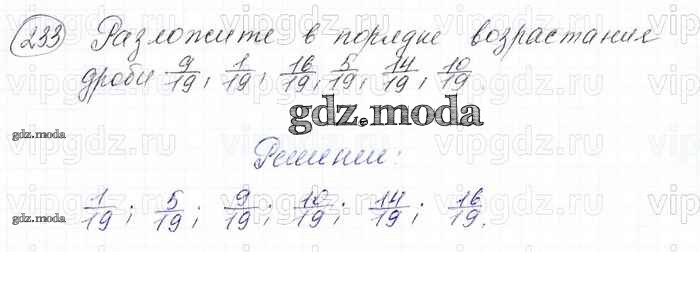 233 Разложите в порядке возрастания
дроби 9/19, 1/19, 16/19, 5/19, 14/19, 10/19.
gdz.moda
gdz.moda
Решение:
1/19; 5/19; 9/19; 10/19; 14/19; 16/19.
gdz.moda